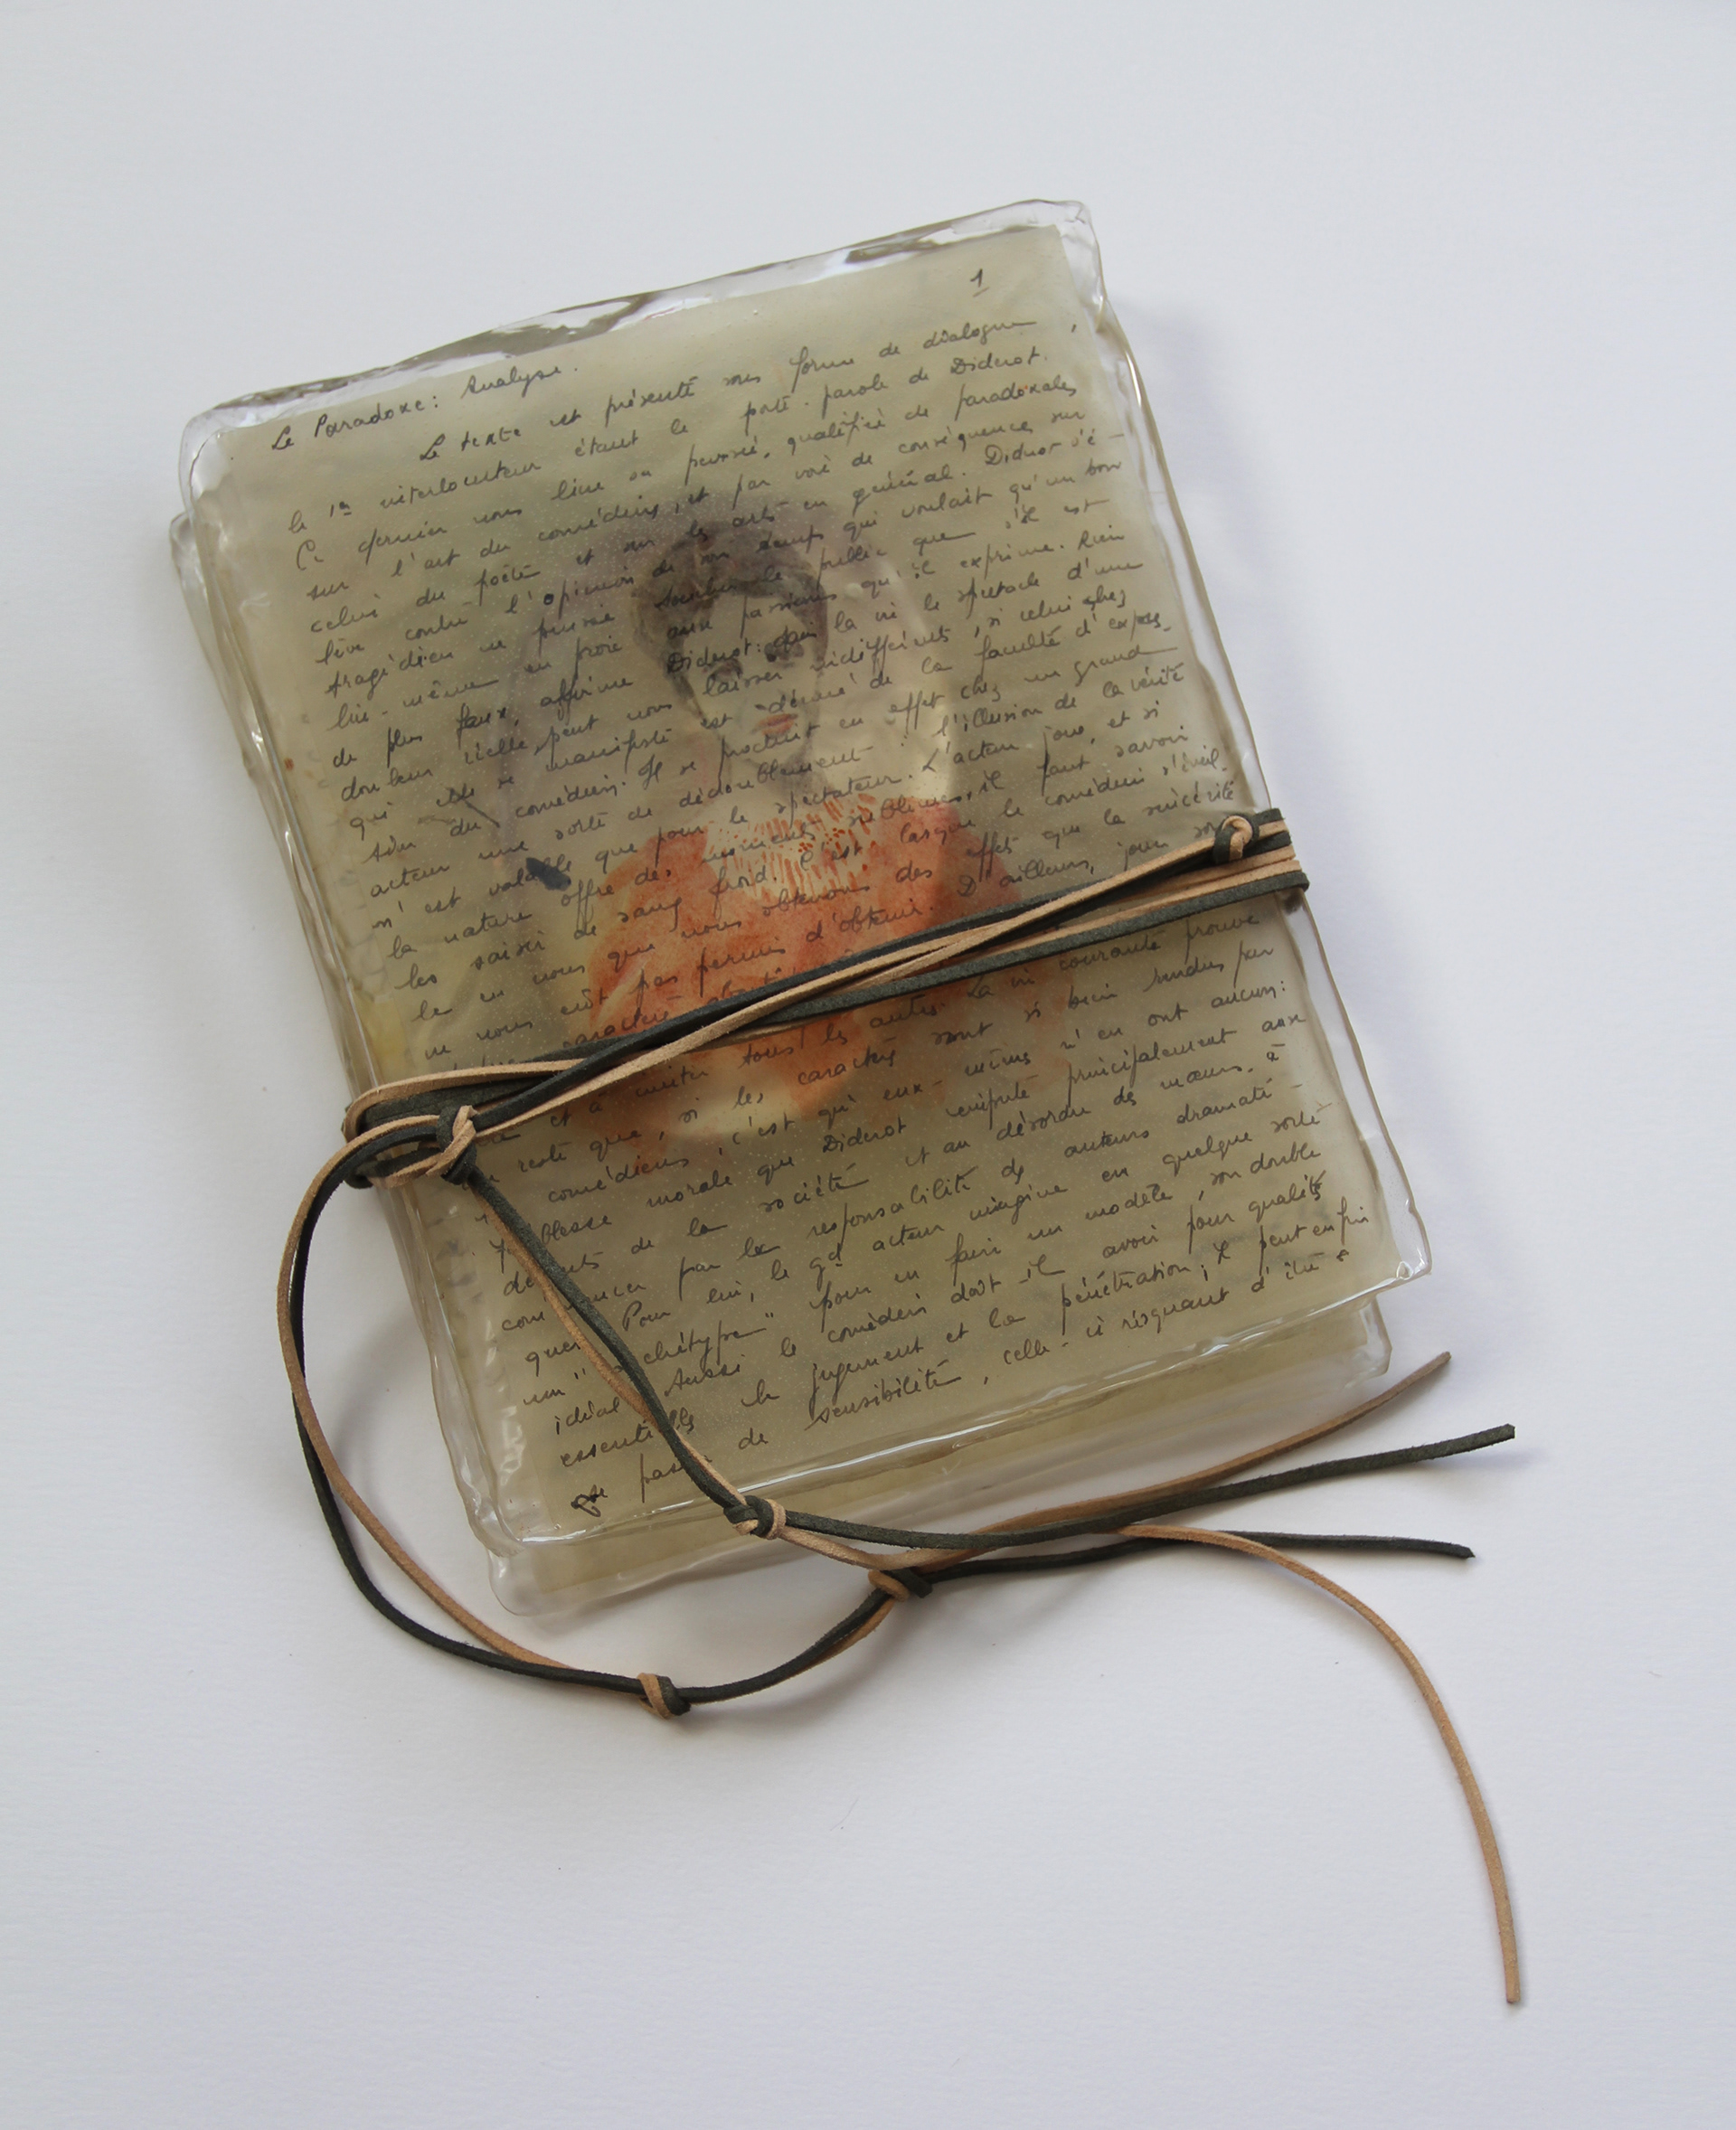 1
Le Paradoxe : Analyse.
Le texte est présenté sous forme de dialogue,
le 1er interlocuteur étant le porte-parole de Diderot.
Ce dernier nous livre sa pensée, qualifiée de paradoxales
sur l'art du comédien, et par voie de conséquences sur
celui du poète et sur les arts en général. Diderot s'é-
lève contre l'opinion de son temps qui voulait qu'un bon
tragédien ne puisse toucher le public que s'il est
lui-même en proie aux passions qu'il exprime. Rien
de plus faux, affirme Diderot : dans la vie le spectacle d'une
douleur réelle peut nous laisser indifférents, si celui chez
qui elle se manifeste est dénué de la faculté d'expres-
sion du comédien. Il se produit en effet chez un grand
acteur une sorte de dédoublement : l'illusion de la vérité
n'est valable que pour le spectateur. L'acteur joue, et si
la nature offre des moments sublimes, il faut savoir
les saisir de sang froid. C'est lorsque le comédien s'éveil-
le en nous que nous obtenons des effets que la sincérité
ne nous eût pas permis d'obtenir. D'ailleurs, jouer son
caractère
et à imiter tous les autres. La vie courante prouve
reste que, si les caractères sont si bien rendus par
comédiens, c'est qu'eux-mêmes n'en ont aucun :
morale que Diderot impute principalement aux
de la société et au désordre des mœurs, à
par la responsabilité des auteurs dramati-
Pour lui, le gd acteur imagine en quelque sorte
un " pour en faire un modèle, son double
idéal Aussi le comédien doit-il avoir pour qualités
essentielles le jugement et la pénétration ; il peut enfin
pas de sensibilité, celle-ci risquant d'être